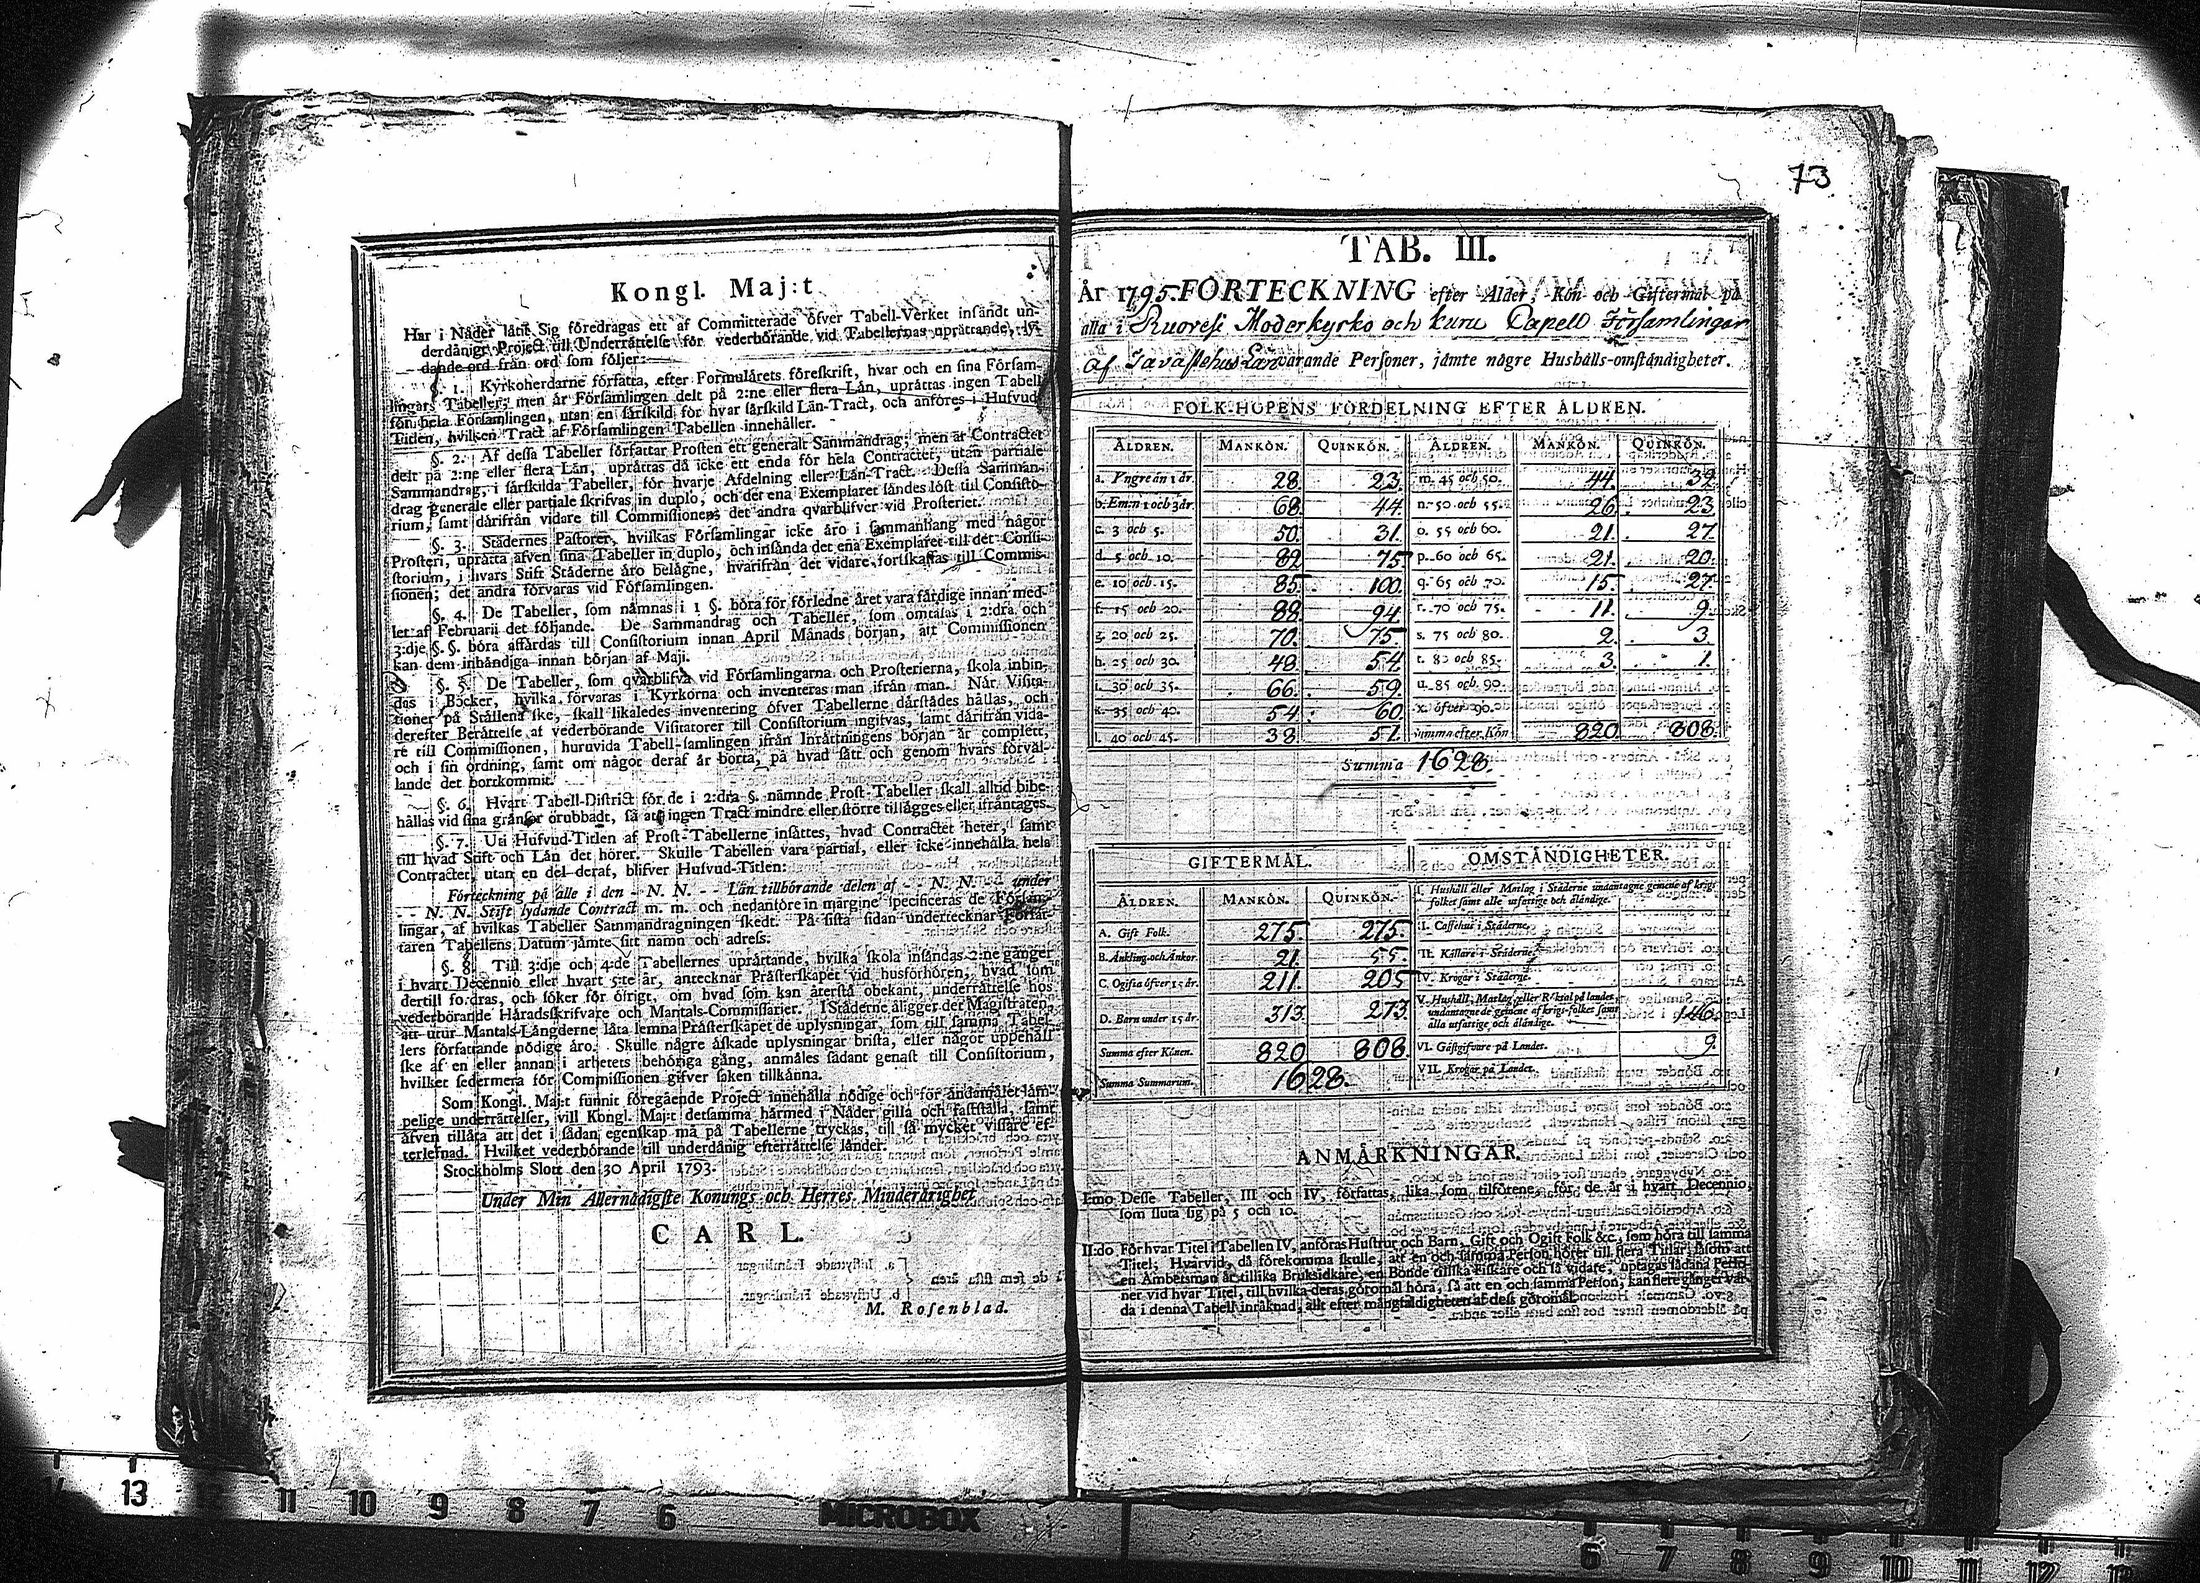 73
Kongl. Maj:t
Har i Nåder låtit Sig föredragas ett af Committerade öfver Tabell-Verket insändt un-
derdånigt Project till Underrättelse för vederbörande vid Tabellernas uprättande, ly-
dande ord från ord som följer:
§. 1. Kyrkoherdarne författa, efter Formulårets föreskrift, hvar och en sina Försam-
lingars Tabeller; men är Församlingen delt på 2:ne eller flera Län, uprättas ingen Tabell
för hela Församlingen, utan en särskild för hvar särskild Län-Tract, och anföres i Hufvud
Titlen, hvilken Tract af Församlingen Tabellen innehåller.
§. 2. Af dessa Tabeller författar Prosten ett generalt Sammandrag; men är Contractet
delt på 2:ne eller flera Län, uprättas då icke ett enda för hela Contractet, utan partiale
Sammandrag, i särskilda Tabeller, för hvarje Afdelning eller Län-Tract. Dessa Samman-
drag generale eller partiale skrifvas in duplo, och det ena Exemplaret sändes löst till Consisto-
rium, samt därifrån vidare till Commissionen; det andra qvarblifver vid Prosteriet.
§. 3. Städernes Pastorer, hvilkas Församlingar icke äro i sammanhang med något
Prosteri, uprätta äfven sina Tabeller in duplo, och insända det ena Exemplaret till det Consi-
storium, i hvars Stift Städerne äro belägne, hvarifrån det vidare fortskaffas till Commis-
sionen; det andra förvaras vid Församlingen.
§. 4. De Tabeller, som nämnas i 1 §. böra för förledne året vara färdige innan med-
let af Februarii det följande. De Sammandrag och Tabeller, som omtalas i 2:dra och
3:dje §. §. böra affärdas till Consistorium innan April Månads början, att Commissionen
kan dem inhändiga innan början af Maji.
§. 5. De Tabeller, som qvarblifva vid Församlingarna och Prosterierna, skola inbin-
das i Böcker, hvilka förvaras i Kyrkorna och inventeras man ifrån man. När Visita-
tioner på Ställena ske, skall likaledes inventering öfver Tabellerne därstädes hållas, och
derefter Berättelse af vederbörande Visitatorer till Consistorium ingifvas, samt därifrån vida-
re till Commissionen, huruvida Tabell-samlingen ifrån Inrättningens början är complett,
och i sin ordning, samt om något deraf är borta, på hvad sätt och genom hvars förvål-
lande det bortkommit.
§. 6. Hvart Tabell-District för de i 2:dra §. nämnde Prost-Tabeller skall alltid bibe-
hållas vid sina gränsor orubbadt, så att ingen Tract mindre eller större tillägges eller ifråntages.
§. 7. Uti Hufvud-Titlen af Prost-Tabellerne insättes, hvad Contractet heter, samt
till hvad Stift och Län det hörer. Skulle Tabellen vara partial, eller icke innehålla hela
Contractet, utan en del deraf, blifver Hufvud-Titlen:
Förteckning på alle i den - N. N. - - Län tillhörande delen af - - N. N. - under
- - N. N. Stift lydande Contract m. m. och nedanföre in margine specificeras de Försam-
lingar, af hvilkas Tabeller Sammandragningen skedt. På sista sidan undertecknar Förfat-
taren Tabellens Datum jämte sitt namn och adress.
§. 8. Till 3:dje och 4:de Tabellernes uprättande, hvilka skola insändas 2:ne gånger
i hvart Decennio eller hvart 5:te år, antecknar Prästerskapet vid husförhören, hvad som
dertill fordras, och söker för öfrigt, om hvad som kan återstå obekant, underrättelse hos
vederbörande Häradsskrifvare och Mantals-Commissarier. I Städerne åligger det Magistraten,
att utur Mantals-Längderne låta lemna Prästerskapet de uplysningar, som till samma Tabel-
lers författande nödige äro. Skulle någre äskade uplysningar brista, eller något uppehåll
ske af en eller annan i arbetets behöriga gång, anmäles sådant genast till Consistorium,
hvilket sedermera för Commissionen gifver saken tillkänna.
Som Kongl. Maj:t funnit föregående Project innehålla nödige och för ändamålet läm-
pelige underrättelser, vill Kongl. Maj:t detsamma härmed i Nåder gilla och fastställa, samt
äfven tillåta att det i sådan egenskap må på Tabellerne tryckas, till så mycket vissare ef-
terlefnad. Hvilket vederbörande till underdånig efterrättelse länder.
Stockholms Slott den 30 April 1793.
Under Min Allernådigste Konungs och Herres Minderårighet
CARL.
M. Rosenblad.
TAB. III.
År 1795. FÖRTECKNING efter Ålder, Kön och Giftermål på
alla i Ruovesi Moderkyrko och Kuru Capell Församlingar
af Tavastehus Län varande Personer, jämte någre Hushålls-omständigheter.
FOLK-HOPENS FÖRDELNING EFTER ÅLDREN.
ÅLDREN. MANKÖN. QUINKÖN. ÅLDREN. MANKÖN. QUINKÖN.
a. Yngre än 1 år. 28. 23. m. 45 och 50. 44. 32.
b. Emm: 1 och 3 år. 68. 44. n. 50 och 55. 26. 23.
c. 3 och 5. 50. 31. o. 55 och 60. 21. 27.
d. 5 och 10. 82. 75. p. 60 och 65. 21. 20.
e. 10 och 15. 85. 100. q. 65 och 70. 15. 27.
f. 15 och 20. 88. 94. r. 70 och 75. 11. 9.
g. 20 och 25. 70. 75. s. 75 och 80. 2. 3.
h. 25 och 30. 48. 54. t. 80 och 85. 3. 1.
i. 30 och 35. 66. 59. u. 85 och 90.
k. 35 och 40. 54. 60. x. öfver 90.
l. 40 och 45. 38. 51. Summa efter Kön 820. 808.
Summa 1628.
GIFTERMÅL. OMSTÄNDIGHETER.
ÅLDREN. MANKÖN. QUINKÖN. I. Hushåll eller Matlag i Städerne undantagne gemene af krigs
folket samt alle utfattige och åländige.
A. Gift Folk. 275. 275. II. Caffehus i Städerne.
B. Änkling. och Änkor. 21. 55. III. Källare i Städerne.
C. Ogifta öfver 15 år. 211. 205 IV. Krogar i Städerne.
D. Barn under 15 år. 313. 273. V. Hushåll, Matlag eller Röktal på landet,
undantagne de gemene af krigs-folket samt 146.
alla utfattige och åländige.
Summa efter Könen. 820. 808. VI. Gästgifvare på Landet. 9.
Summa Summarum. 1628. VII. Krogar på Landet.
ANMÄRKNINGAR.
I:mo Desse Tabeller, III och IV, författas, lika som tilförene, för de år i hvart Decennio
som sluta sig på 5 och 10.
II:do För hvar Titel i Tabellen IV, anföras Hustrur och Barn, Gift och Ogift Folk &c., som höra till samma
Titel; Hvarvid, då förekomma skulle, att en och samma Person hörer till flera Titlar, såsom att
en Ämbetsman är tillika Bruksidkare, en Bonde tillika Fiskare och så vidare, uptages sådana Perso-
ner vid hvar Titel, till hvilka deras göromål höra, så att en och samma Person, kan flere gånger var-
da i denna Tabell inräknad, allt efter mångfaldigheten af dess göromål.
13 11 10 9 8 7 6 MICROBOX 6 7 8 9 10 11 12 13